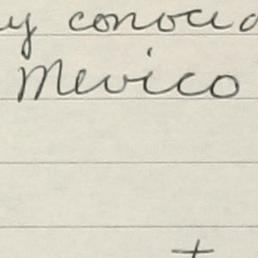 y conocid
Mexico